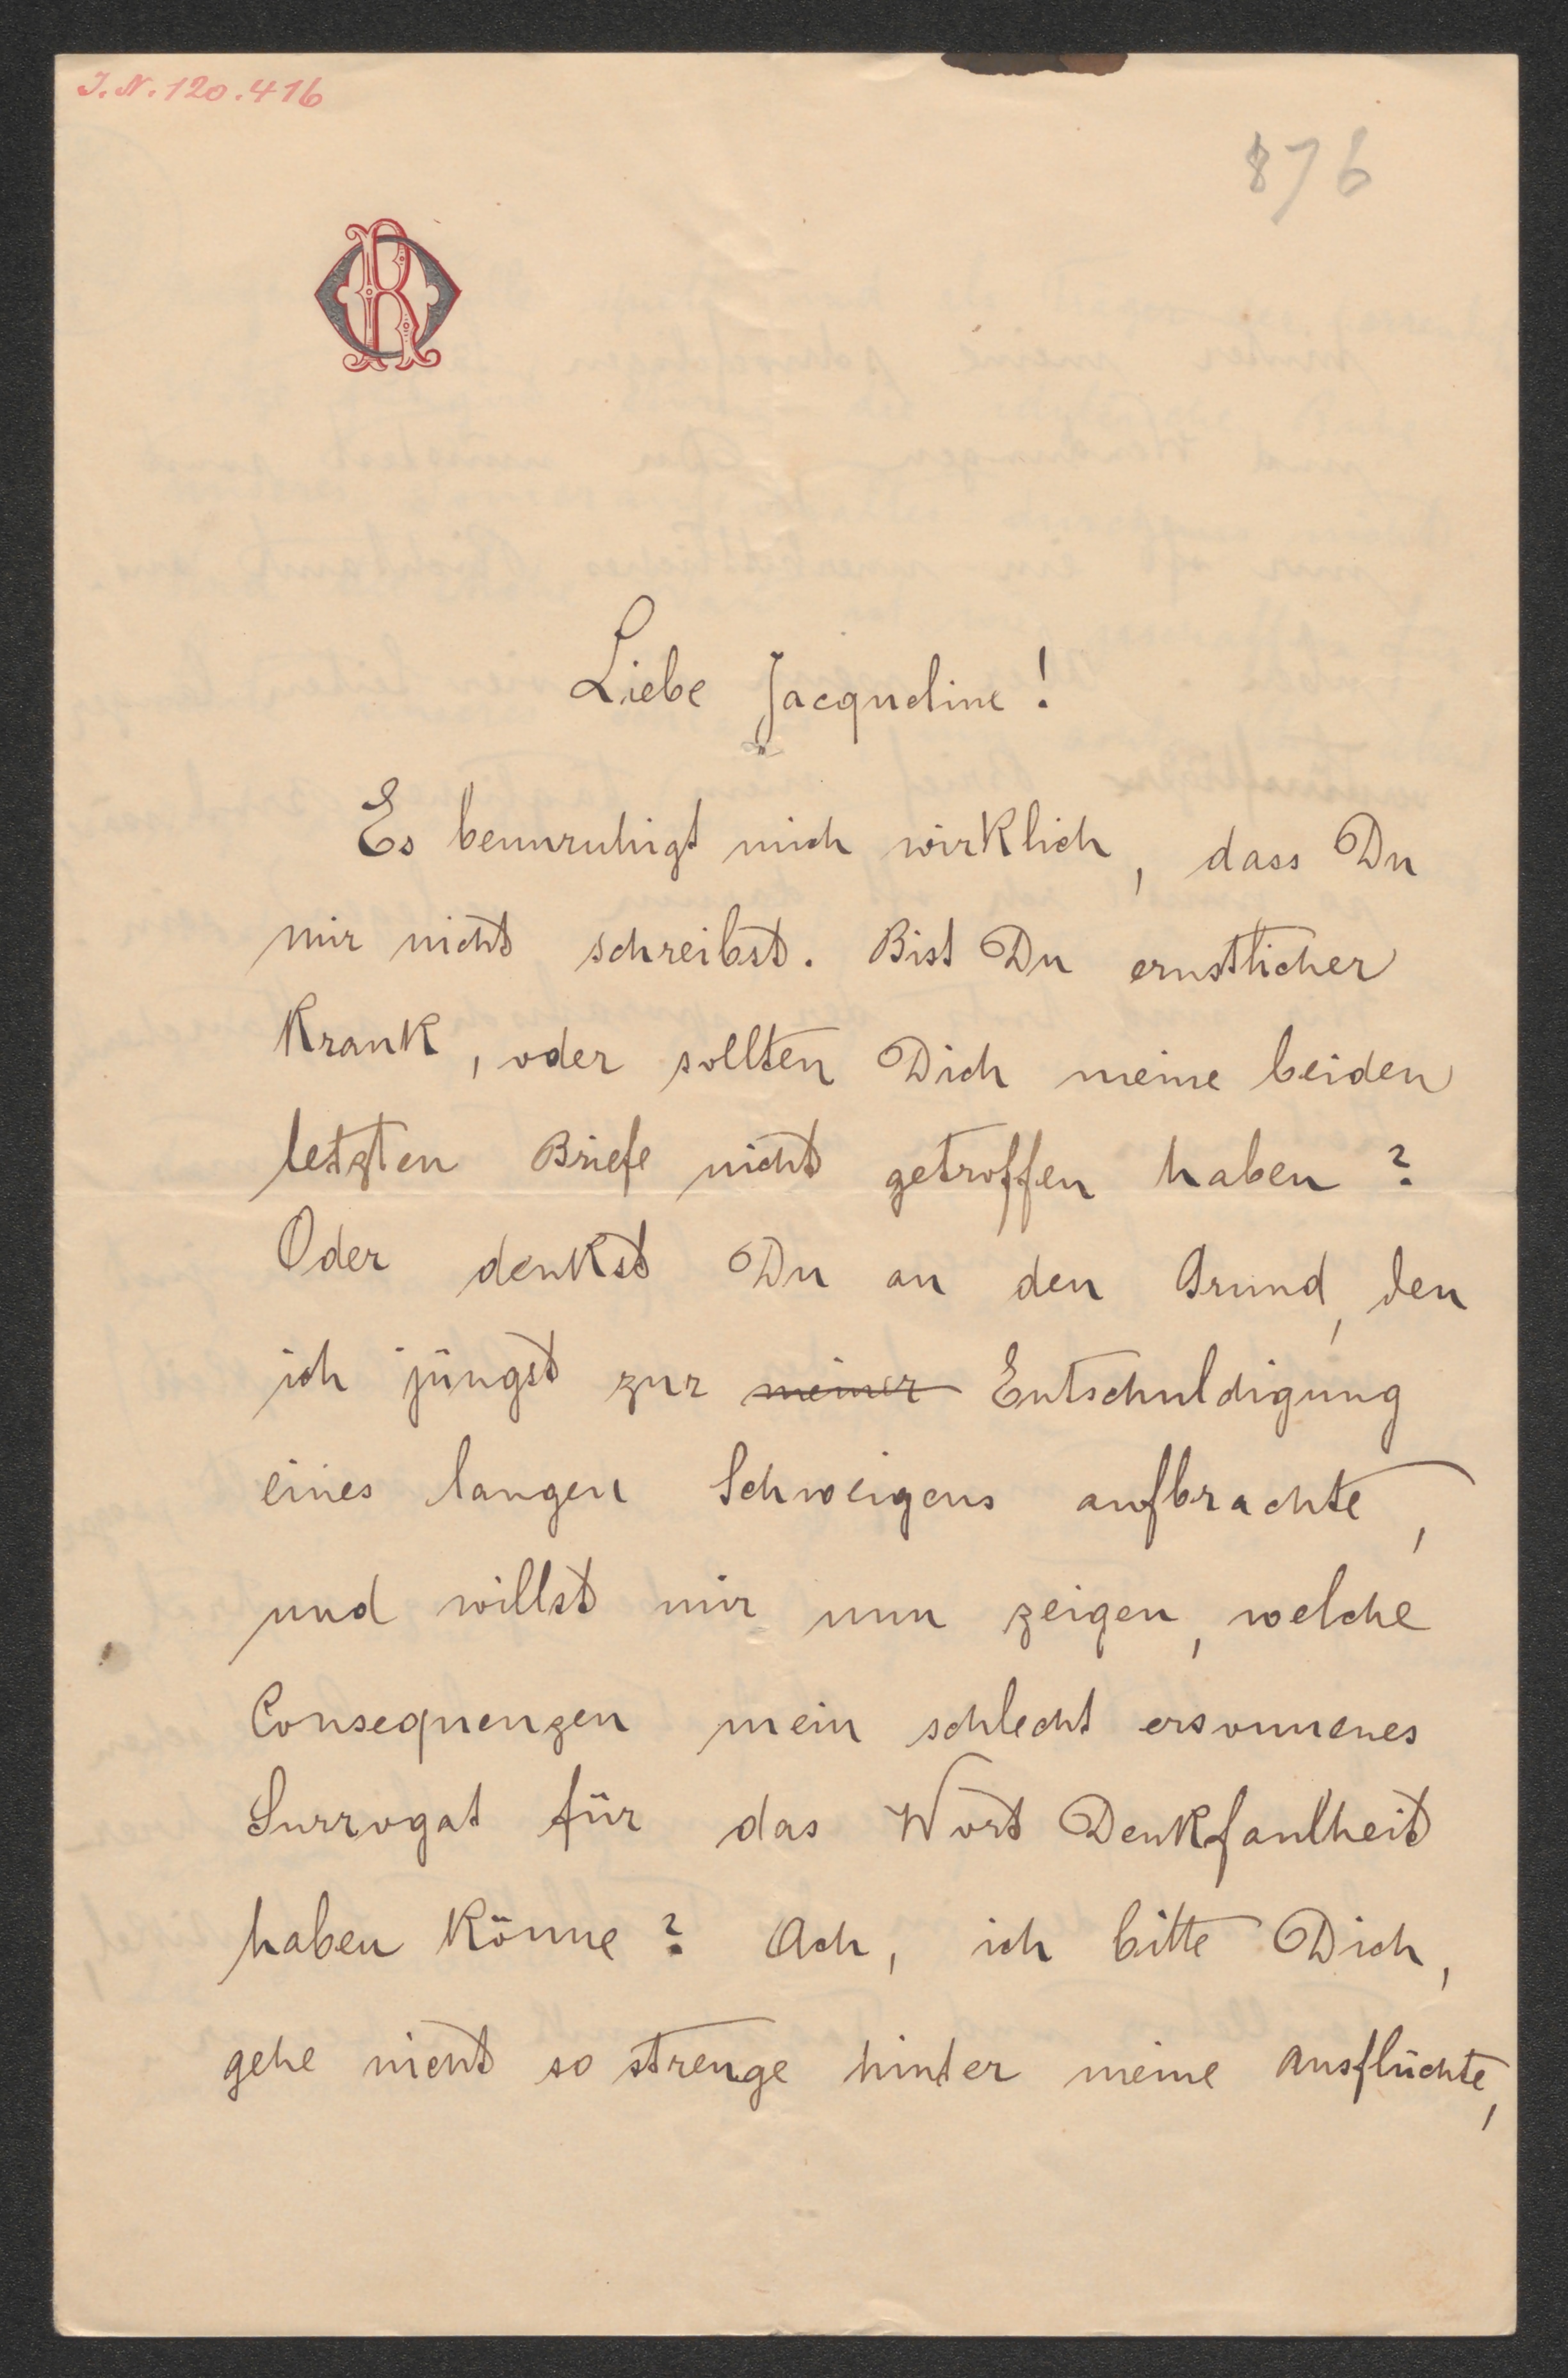 J. N. 120.416
876
OR
Liebe Jacqueline!
Es beunruhigt mich wirklich, dass Du
mir nicht schreibst. Bist Du ernstlicher
krank, oder sollten Dich meine beiden
letzten Briefe nicht getroffen haben?
Oder denkst Du an den Grund, den
ich jüngst zur meiner Entschuldigung
eines langen Schweigens aufbrachte,
und willst mir nun zeigen, welche
Consequenzen mein schlecht ersonnenes
Surrogat für das Wort Denkfaulheit
haben könne? Ach, ich bitte Dich,
gehe nicht so strenge hinter meine Ausflüchte,